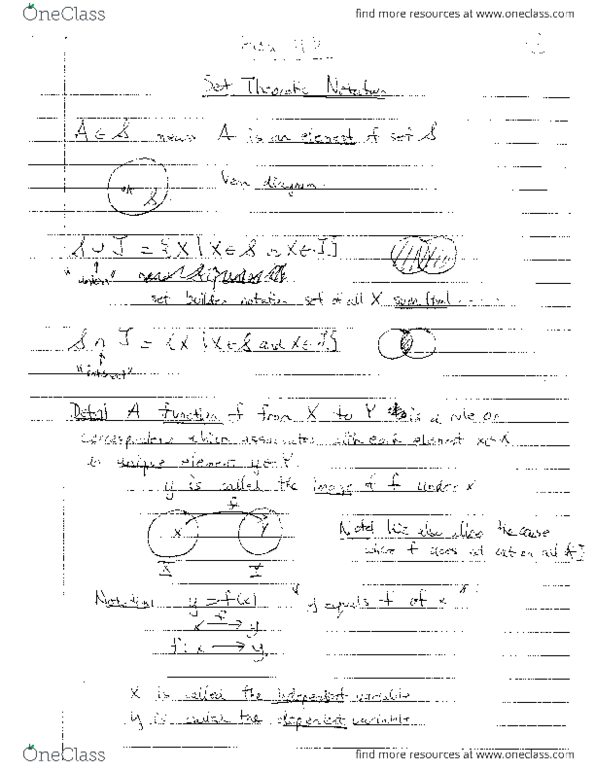 OneClass
find more resources at www.oneclass.com
Set Theoretic Notation
A ∈ S means A is an element of set S
A S
Venn diagram
S ∪ J = {X | X ∈ S or X ∈ J}
"union"
set builder notation set of all X such that
S ∩ J = {X | X ∈ S and X ∈ J}
"intersect"
A function f from X to Y is a rule or
correspondence which associates with each element x ∈ X
unique element y ∈ Y.
y is called the image of f under x
f
X Y
X Y
Note the case
where f does not on all of
Notation y = f(x) "y equals f of x"
x f→ y
f: x → y
X is called the independent variable
y is called the dependent variable
OneClass
find more resources at www.oneclass.com